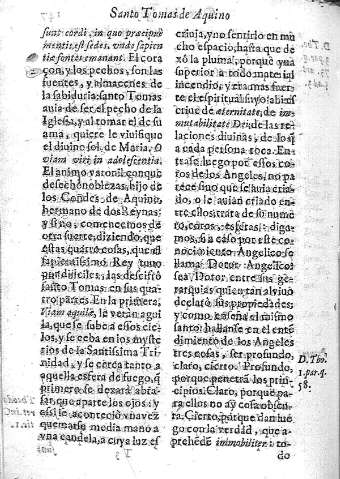 Santo Tomas de Aquino
sunt cordi, in quo præcipuè
mentis est sedes, unde sapien
tiæ fontes emanant. El cora
çon, y los pechos, son las
fuentes, y almaçenes de
la sabiduria: santo Tomas
auia de ser el pecho de la
Iglesia, y al tomar el de su
ama, quiere le viuifique
el diuino sol de Maria. O
viam viri in adolescentia.
El animo varonil con que
desechò noblezas, hijo de
los Condes de Aquino,
hermano de dos Reynas:
y sino, comencemos de
otra suerte, diziendo, que
estas quatro cosas, que el
sapientissimo Rey tuuo
por dificiles, las descifrò
santo Tomas en sus qua
tro partes. En la primera,
viam aquilæ, le veràn agui
la, que se sube a essos cie
los, y se ceba en los myste
rios de la Santissima Tri
nidad, y se cerca tanto a
aquella esfera de fuego, q̃
primero se dexarà abra-
sar, que aparte los ojos: y
assi le aconteciò vna vez
quemarse media mano a
vna candela, a cuya luz es
criuia, y no sentirlo en mu
cho espacio, hasta que de
xò la pluma, porque yua
superior a todo material
incendio, y era mas fuer
te el espiritual suyo: alli es
criue de æternitate, de im
mutabilitate Dei, de las re
laciones diuinas, de lo q̃
a cada persona toca. En
trase luego por essos co
ros de los Angeles, no pa
rece sino que se auia cria
do, o le auian criado en-
tre ellos, trata de su nume
ro, coros,
mos, o a caso por este co
nocimiento Angelico se
llama Dotor Angelico:
sea Dotor entre sus ge-
rarquias quien tan al viuo
declarò sus propiedades;
y como enseña el mismo
santo, hallanse en el entẽ
dimiento de los Angeles
tres cosas, ser profundo,
claro, cierto. Profundo,
porque penetra los prin-
cipios. Claro, porque pa
ra ellos no ay cosa obscu
ra. Cierto, porque dan lue
go con la verdad, que a-
prehende immobiliter: to
do
D. Tho.
1. par. q.
58.